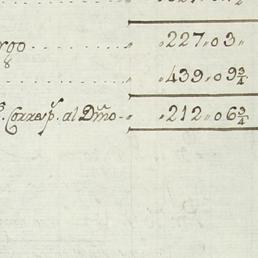 rgo . . . . . . . . . „ 227 „ 03 „
8
. . . . . . . . . „ 439 „ 09 3/4
s. Corresp.te al Dmo . . „ 212 „ 06 3/4